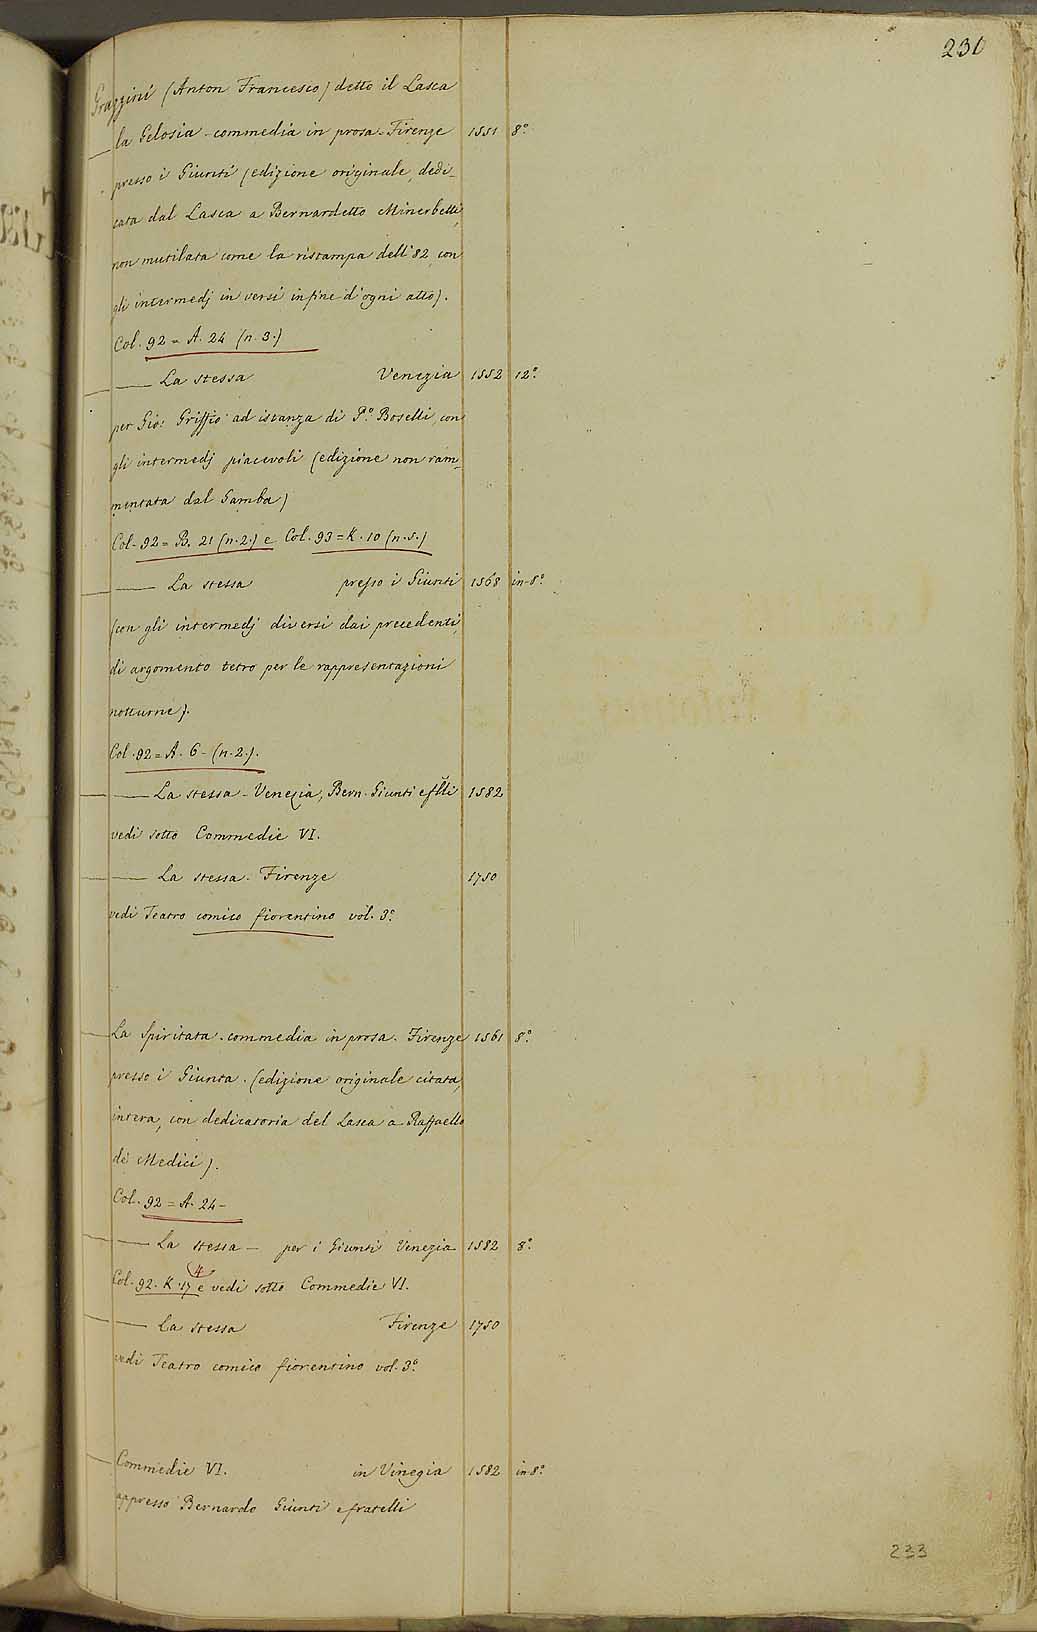 230
Grazzini (Anton Francesco) detto il Lasca
— la Gelosia - commedia in prosa - Firenze 1551 8°
presso i Giunti (edizione originale, dedi-
cata dal Lasca a Bernardetto Minerbetti,
non mutilata come la ristampa dell'82, con
gli intermedj in versi in fine d'ogni atto).
Col. 92 = A. 24 (n. 3.)
— La stessa Venezia 1552 12°.
per Gio: Griffio ad istanza di P.° Boselli, con
gli intermedj piacevoli (edizione non ram-
mentata dal Gamba)
Col. 92 = B. 21 (n. 2.) e Col. 93 = K. 10 (n. 5.)
— La stessa presso i Giunti 1568 in-8°.
(con gli intermedj diversi dai precedenti,
di argomento tetro per le rappresentazioni
notturne).
Col. 92 = A. 6 - (n. 2.).
— La stessa - Venezia, Bern. Giunti e flli 1582
vedi sotto Commedie VI.
— La stessa. Firenze 1750
vedi Teatro comico fiorentino vol. 3°.
— La Spiritata. commedia in prosa. Firenze 1561 8°.
presso i Giunta. (edizione originale citata,
intera, con dedicatoria del Lasca a Raffaello
de' Medici).
Col. 92 = A. 24 -
— La stessa — per i Giunti Venezia 1582 8°.
Col. 92. K. 17 4 e vedi sotto Commedie VI.
— La stessa Firenze 1750
vedi Teatro comico fiorentino vol. 3°.
— Commedie VI. in Vinegia 1582 in 8°.
appresso Bernardo Giunti e fratelli
233